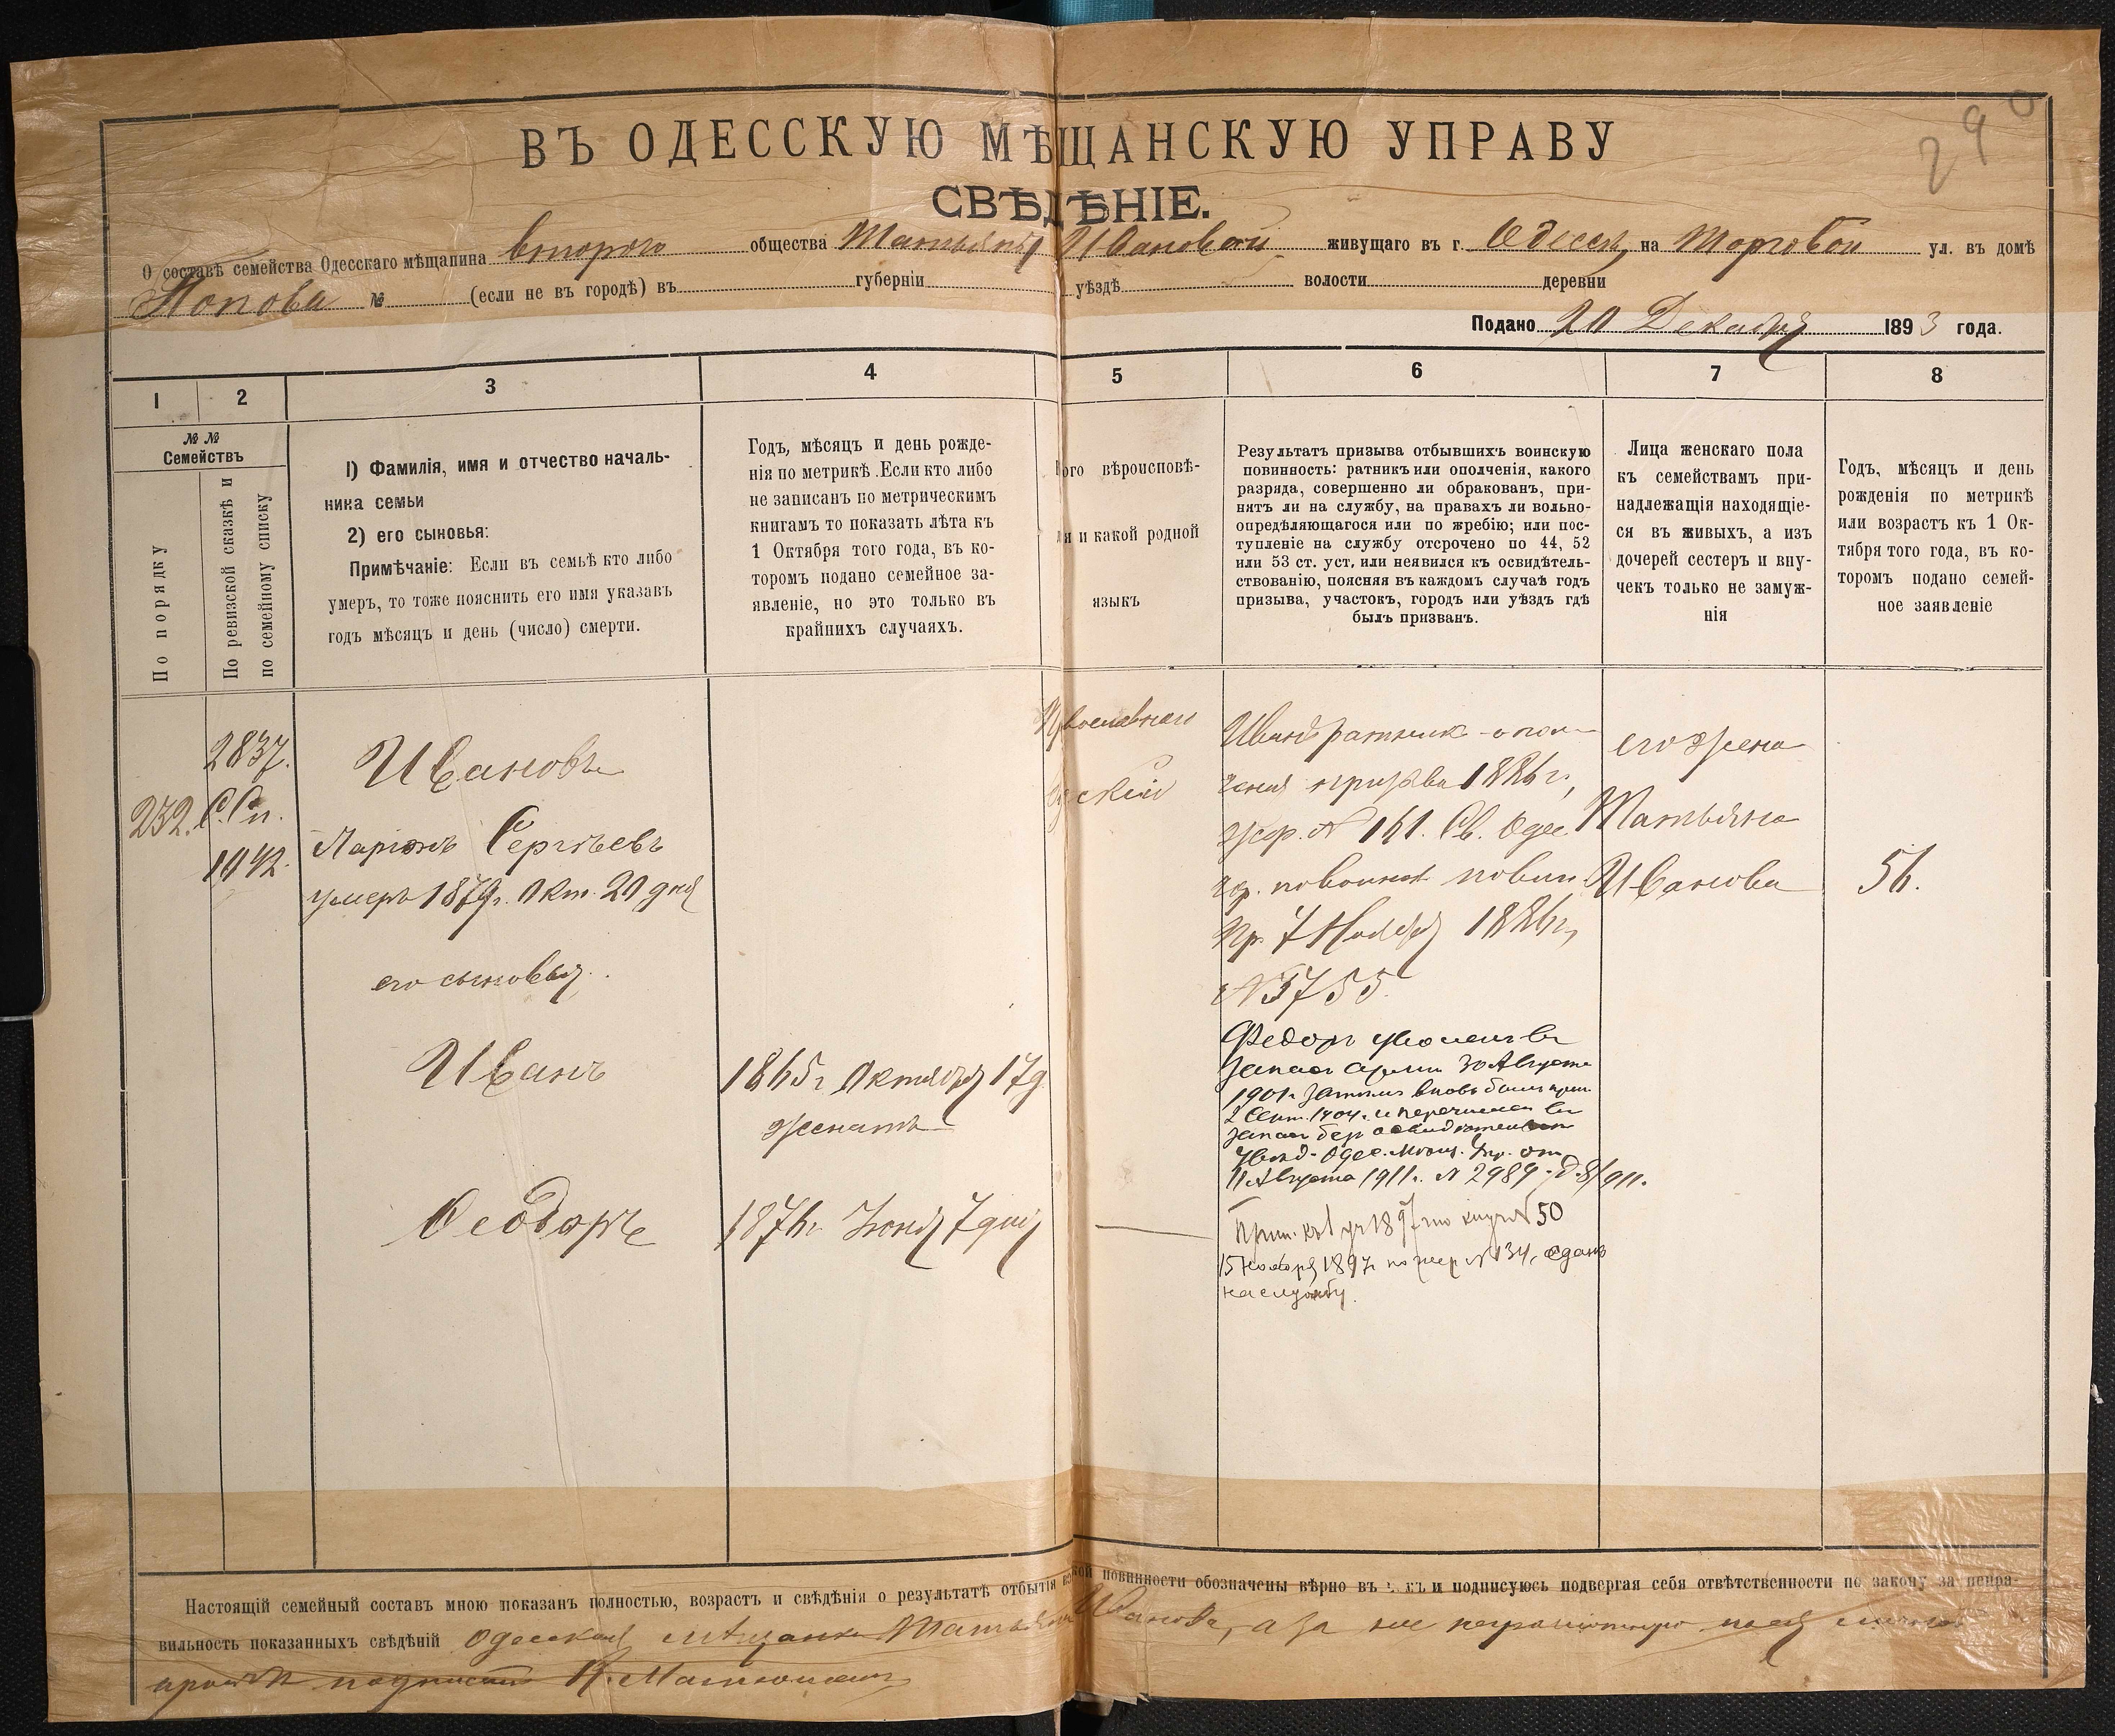 290
ВЪ ОДЕССКУЮ МѢЩАНСКУЮ УПРАВУ
СВѢДѢНІЕ.
О составѣ семейства Одесскаго мѣщанина второго общества Татьяны Ивановой живущаго въ г. Одессѣ на Торговой ул. въ домѣ
Попова № (если не въ городѣ) въ губерніи уѣздѣ волости деревни
Подано 20 Декабря 1893 года.
1 2 3 4 5 6 7 8
№ №
Семействъ
По порядку
По ревизской сказкѣ и
по семейному списку
1) Фамилія, имя и отчество началь-
ника семьи
2) его сыновья:
Примѣчаніе: Если въ семьѣ кто либо
умеръ, то тоже пояснить его имя указавъ
годъ мѣсяцъ и день (число) смерти.
Годъ, мѣсяцъ и день рожде-
нія по метрикѣ. Если кто либо
не записанъ по метрическимъ
книгамъ то показать лѣта къ
1 Октября того года, въ ко-
торомъ подано семейное за-
явленіе, но это только въ
крайнихъ случаяхъ.
ого вѣроисповѣ-
ія и какой родной
языкъ
Результатъ призыва отбывшихъ воинскую
повинность: ратникъ или ополченія, какого
разряда, совершенно ли обракованъ, при-
нятъ ли на службу, на правахъ ли вольно-
опредѣляющагося или по жребію; или пос-
тупленіе на службу отсрочено по 44, 52
или 53 ст. уст, или неявился къ освидѣтель-
ствованію, поясняя въ каждомъ случаѣ годъ
призыва, участокъ, городъ или уѣздъ гдѣ
былъ призванъ.
Лица женскаго пола
къ семействамъ при-
надлежащія находящіе-
ся въ живыхъ, а изъ
дочерей сестеръ и вну-
чекъ только не замуж-
нія
Годъ, мѣсяцъ и день
рожденія по метрикѣ
или возрастъ къ 1 Ок-
тября того года, въ ко-
торомъ подано семей-
ное заявленіе
232.
2837.
С. Сп.
1942.
Ивановъ
Ларіонъ Сергѣевъ
умеръ 1879г. Окт. 20 дня
его сыновья.
Иванъ
Ѳеодоръ
1865г Октября 17 д
женатъ
1876г. Іюня 7 дня
Православнаго
русскій
Иванъ ратникъ опол-
ченія призыва 1886 г,
жер. № 161. Св. Одес
гр. по воинск повин
пр. 7 Ноября 1886г,
№ 5755
Федоръ уволенъ въ
запас армии 30 Августа
1901г затѣмъ вновь былъ приз
2 Сент. 1904г. и перечислен въ
запас без освидѣтельст
Увѣд. Одес. Мѣщ. Упр. от
11 Августа 1911г. № 2989 Д-8/911.
Прин. къ 1 уч 1897 по книгѣ № 50
15 ноября 1897г по жер № 134, сданъ
на службу.
его жена
Татьяна
Иванова
56.
Настоящій семейный составъ мною показанъ полностью, возрастъ и свѣдѣнія о результатѣ отбытія кой повинности обозначены вѣрно въ и подписуюсь подвергая себя отвѣтственности по закону за непра-
вильность показанныхъ свѣдѣній Одесская мѣщанка Татьяна Иванова, а за нее неграмотную по ея личной
просьбѣ подписалъ